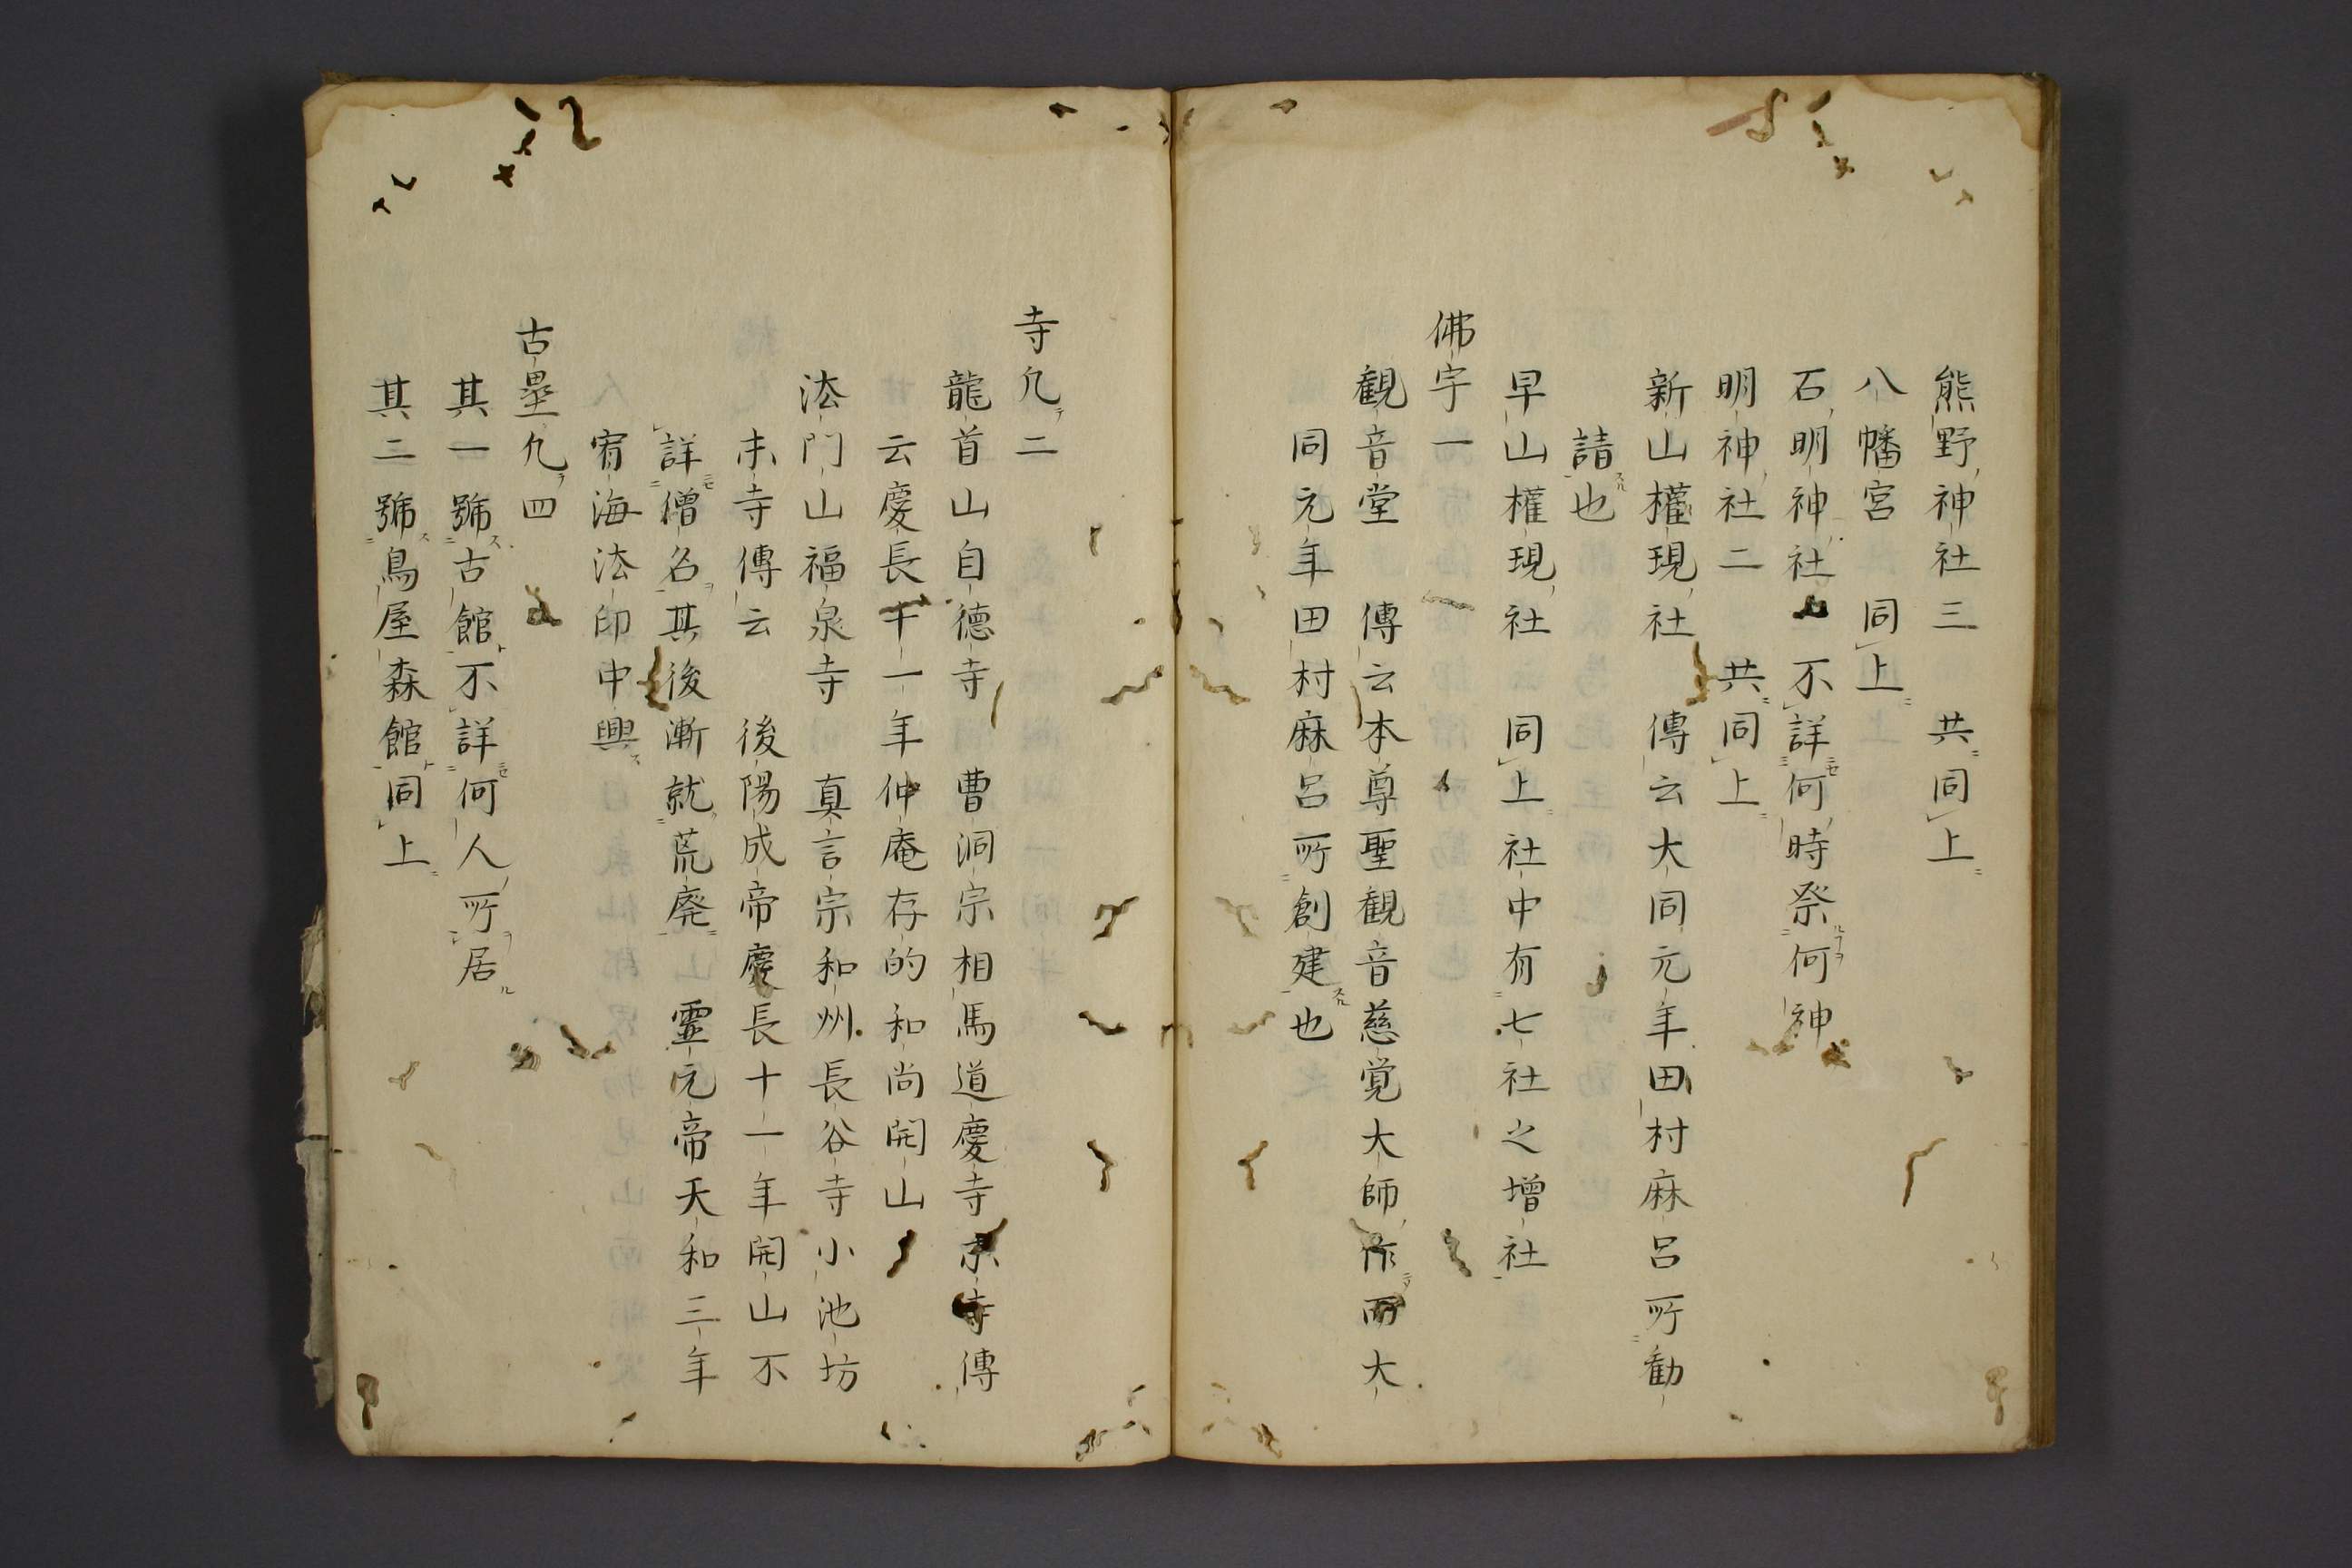 熊野神社三　共同上
八幡宮　同上
石明神社　不詳何時祭何神
明神社二　共同上
新山權現社　傳云大同元年田村麻呂所勸
請也
早山權現社　同上社中有七社之增社
佛宇一
観音堂　傳云本尊聖観音慈覚大師作而大
同元年田村麻呂所創建也
寺凡二
龍首山自德寺　曹洞宗相馬道慶寺末寺傳
云慶長十一年仲庵存的和尚開山
法門山福泉寺　真言宗和州長谷寺小池坊
末寺傳云　後陽成帝慶長十一年開山不
詳僧名其後漸就荒廃　霊元帝天和三年
宥海法印中興
古壘凡四
其一號古館不詳何人所居
其二號鳥屋森館同上